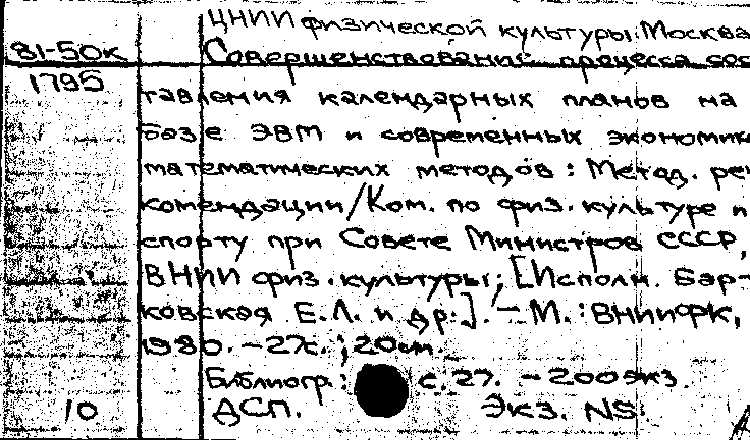 ЦНИИ физической культуры. Москва
81-50к Совершенствование процесса сос-
1795
тавления календарных планов на
базе ЭВМ и современных экономико
математических методов: Метод. ре-
комендации/Ком. по физ. культуре и
спорту при Совете Министров СССР,
ВНИИ физ. культуры; [Исполн. Бар-
ковская Е.Л. и др.]. - М.: ВНИИФК,
1980. - 27с.; 20см.
Библиогр.: с. 27. - 200экз.
10 ДСП. Экз. №